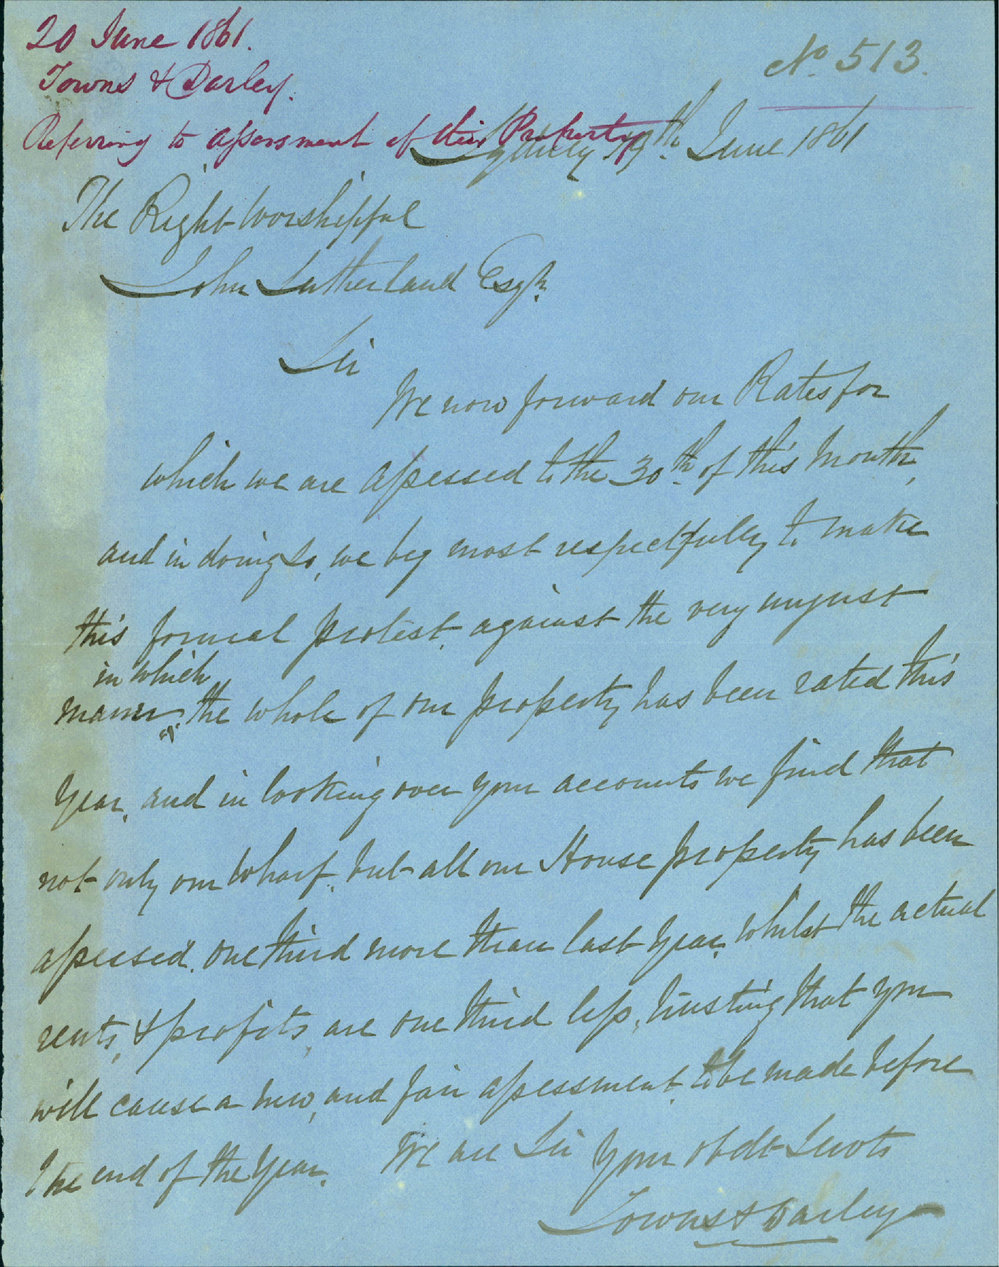 20 June 1861.
Towns & Darley.
Referring to assessment of their Property
No. 513.
Sydney 19th June 1861
The Right Worshipful
John Sutherland Esqr.
Sir
We now forward our Rates for
which we are assessed to the 30th of this Month,
and in doing so, we beg most respectfully to make
this formal protest against the very unjust
in which
manner the whole of our property has been rated this
Year, and in looking over your accounts we find that
not only our Wharf, but all our House property has been
assessed, one third more than last Year, Whilst the actual
rents, & profits, are one third less, trusting that you
will cause a new, and fair assessment, to be made before
the end of the Year.
We are Sir Your obdt Servts
Towns & Darley